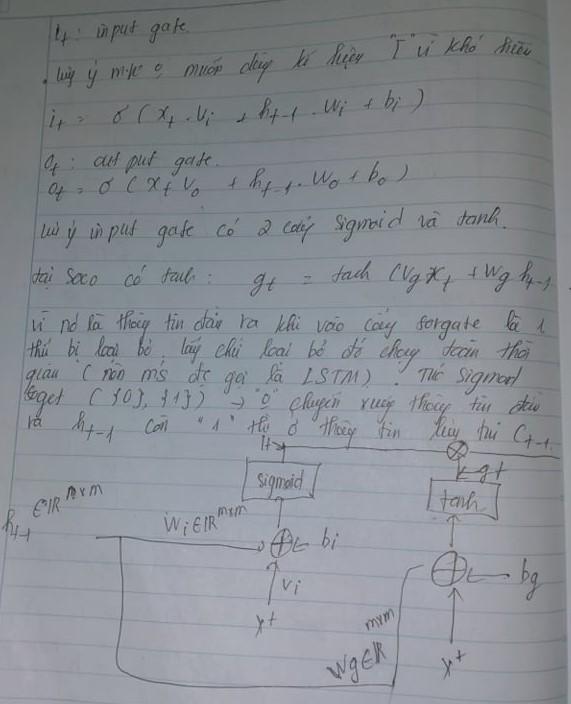 i_t : input gate.
. lưu ý mk o muốn dùng kí hiệu "I" vì khó hiểu
i_t = σ ( x_t . V_i + h_{t-1} . W_i + b_i )
O_t : out put gate.
o_t = σ ( x_t V_o + h_{t-1} . W_o + b_o )
lưu ý input gate có 2 cổng sigmoid và tanh.
tại sao có tanh : g_t = tanh ( V_g x_t + W_g h_{t-1}
vì nó là thông tin đầu ra khi vào cổng forgate là 1
thứ bị loại bỏ, lấy chỉ loại bỏ đó chạy đoạn thời
gian ( nên mới đc gọi là LSTM ) . Thứ sigmod
foget ( {0}, {1} ) → "0" chuyển thông tin đầu
ra h_{t-1} còn "1" thì ở thông tin C_{t-1}
i_t ⊗
sigmoid g_t
tanh
h_{t-1} ∈ ℝ^{m×m} W_i ∈ ℝ^{m×m} ⊕ b_i
V_i ⊕ b_g
x_t
W_g ∈ ℝ^{m×m} x_t